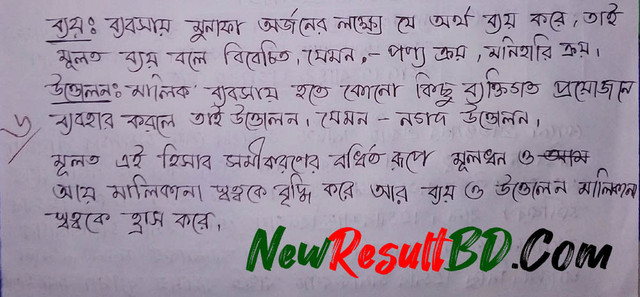 ব্যয়ঃ ব্যবসায় মুনাফা অর্জনের লক্ষ্যে যে অর্থ ব্যয় করে, তাই
মূলত ব্যয় বলে বিবেচিত, যেমন,- পণ্য ক্রয়, মনিহারি ক্রয়।
উত্তোলনঃ মালিক ব্যবসায় হতে কোনো কিছু ব্যক্তিগত প্রয়োজনে
ব্যবহার করলে তাই উত্তোলন, যেমন - নগদ উত্তোলন।
মূলত এই হিসাব সমীকরণের বর্ধিত রূপে মূলধন ও
আয় মালিকানা স্বত্বকে বৃদ্ধি করে আর ব্যয় ও উত্তোলন মালিকানা
স্বত্বকে হ্রাস করে।
NewResultBD.Com